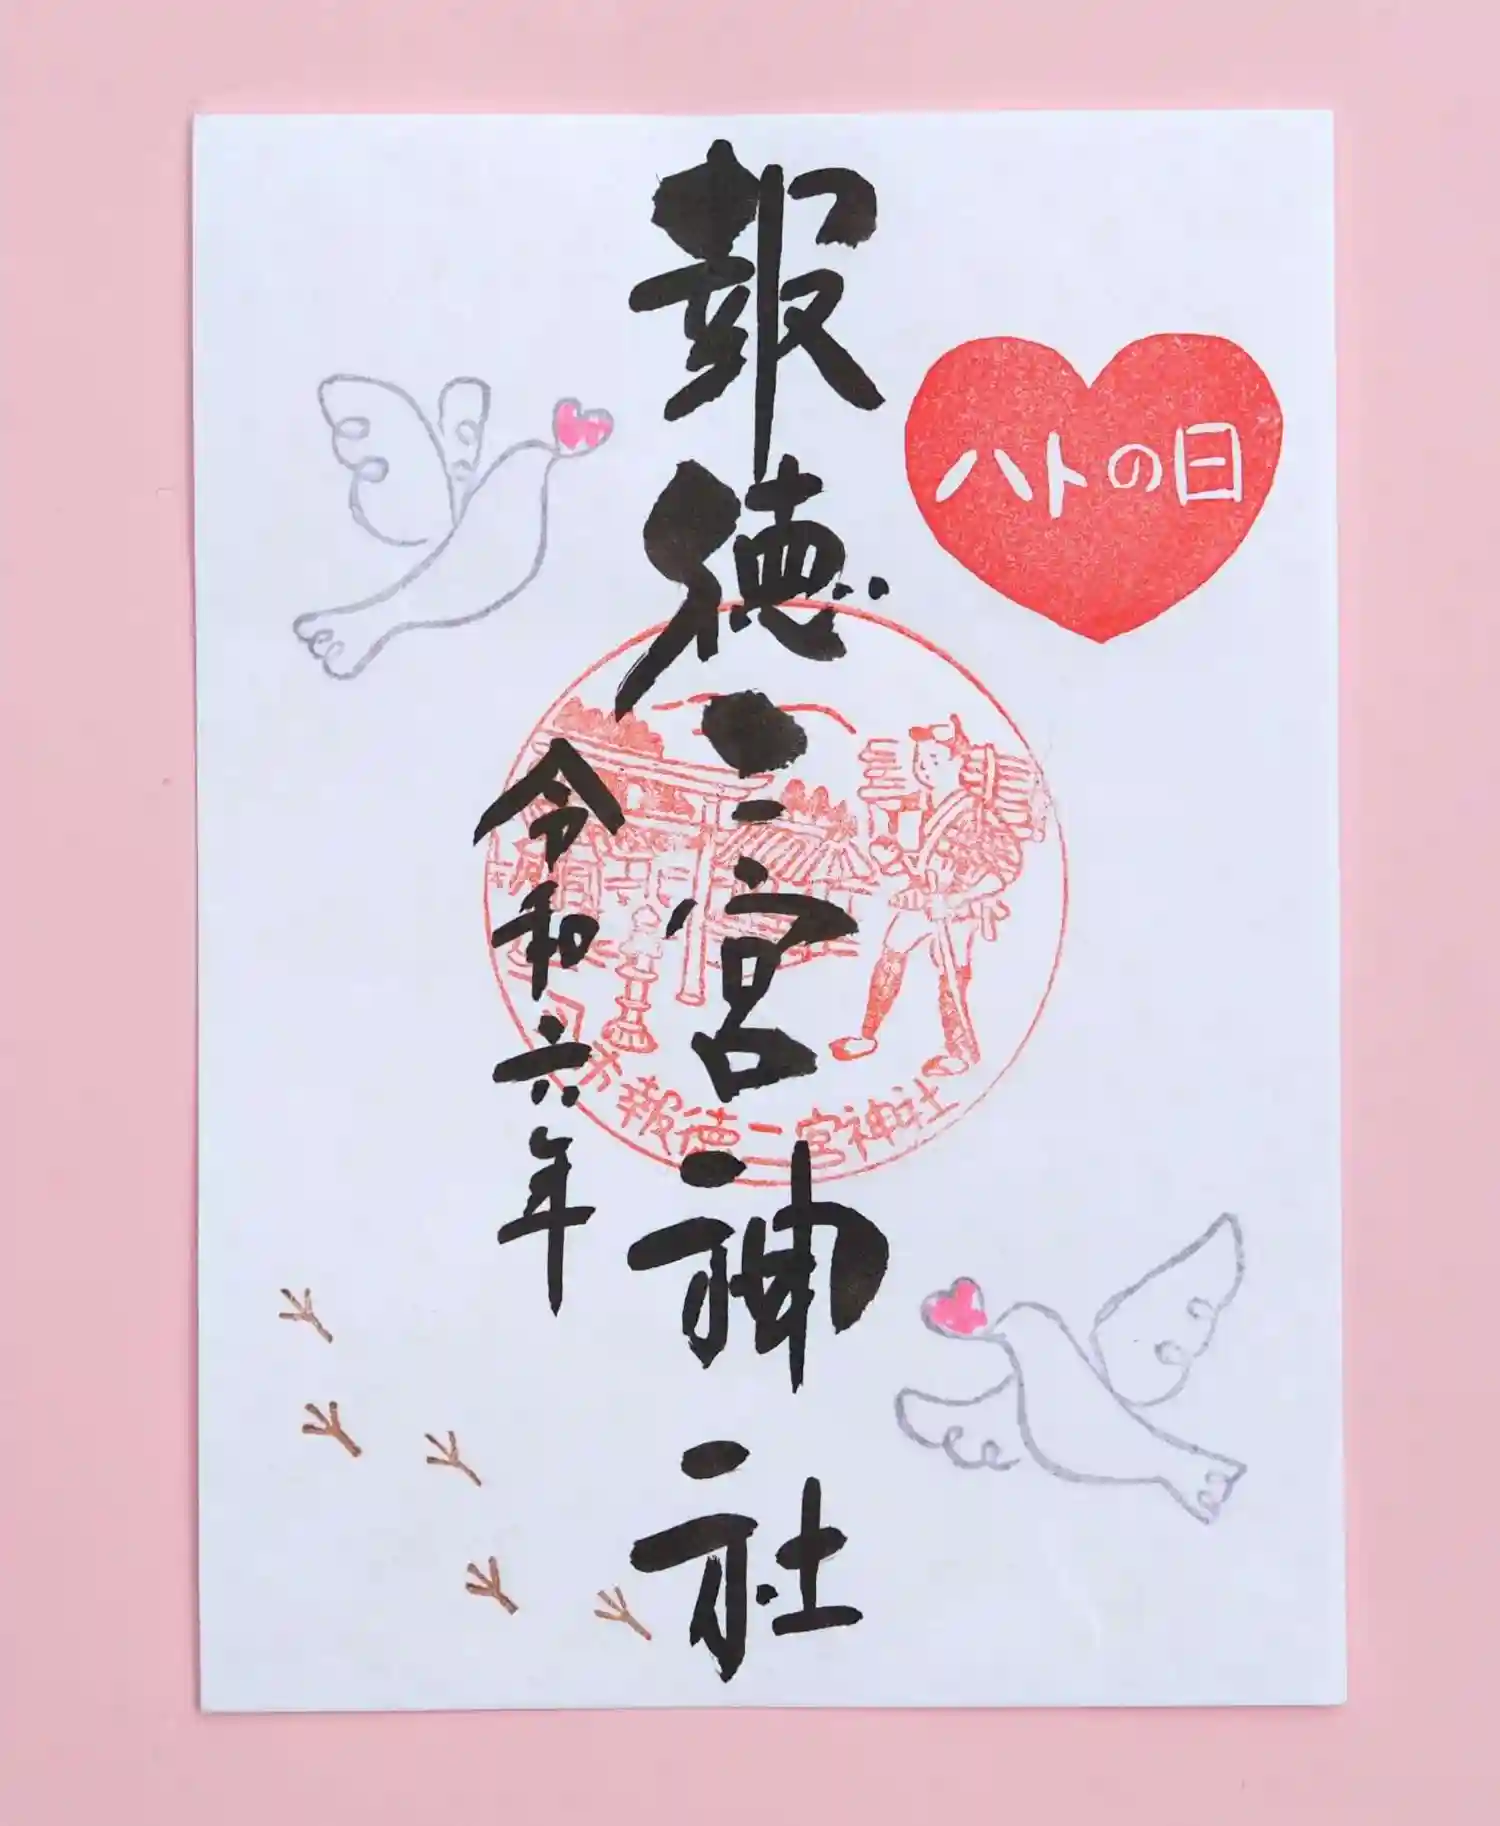 ハトの日
報徳二宮神社
令和六年
報徳二宮神社